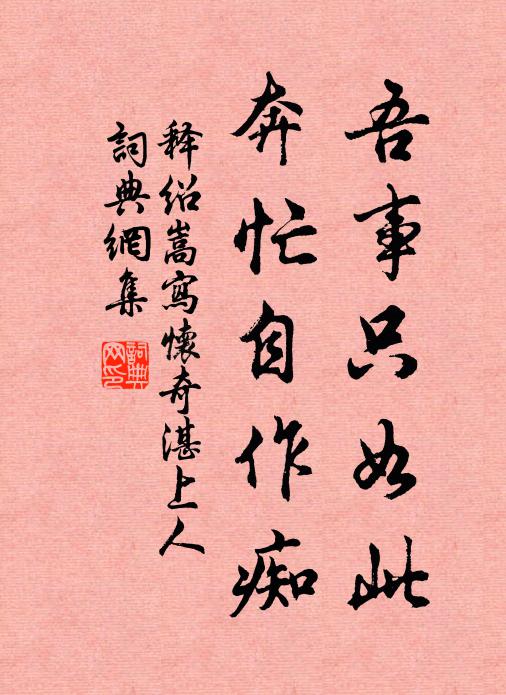 吾事只如此
奔忙自作痴
释绍嵩寫懷奇湛上人
詞典網集
詞典网印